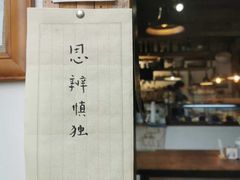 思
辨
慎
独